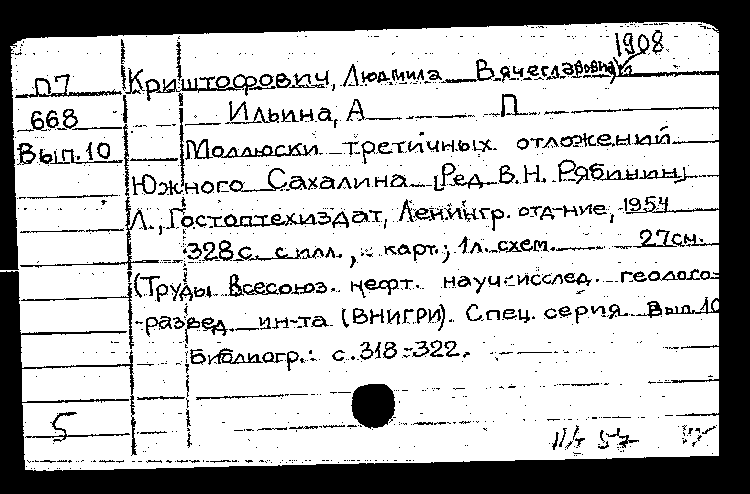 1908
П7 Криштофович, Людмила Вячеславовна,
668 Ильина, А П
Вып.10 Моллюски третичных отложений
Южного Сахалина [Ред. В.Н. Рябинин]
Л., Гостоптехиздат, Ленингр. отд-ние, 1954
328 с. с илл., карт.; 1л. схем. 27см.
(Труды Всесоюз. нефт. науч-исслед. геолого-
-развед. ин-та (ВНИГРИ). Спец. серия. Вып.10
Библиогр.: с.318-322.
5
57